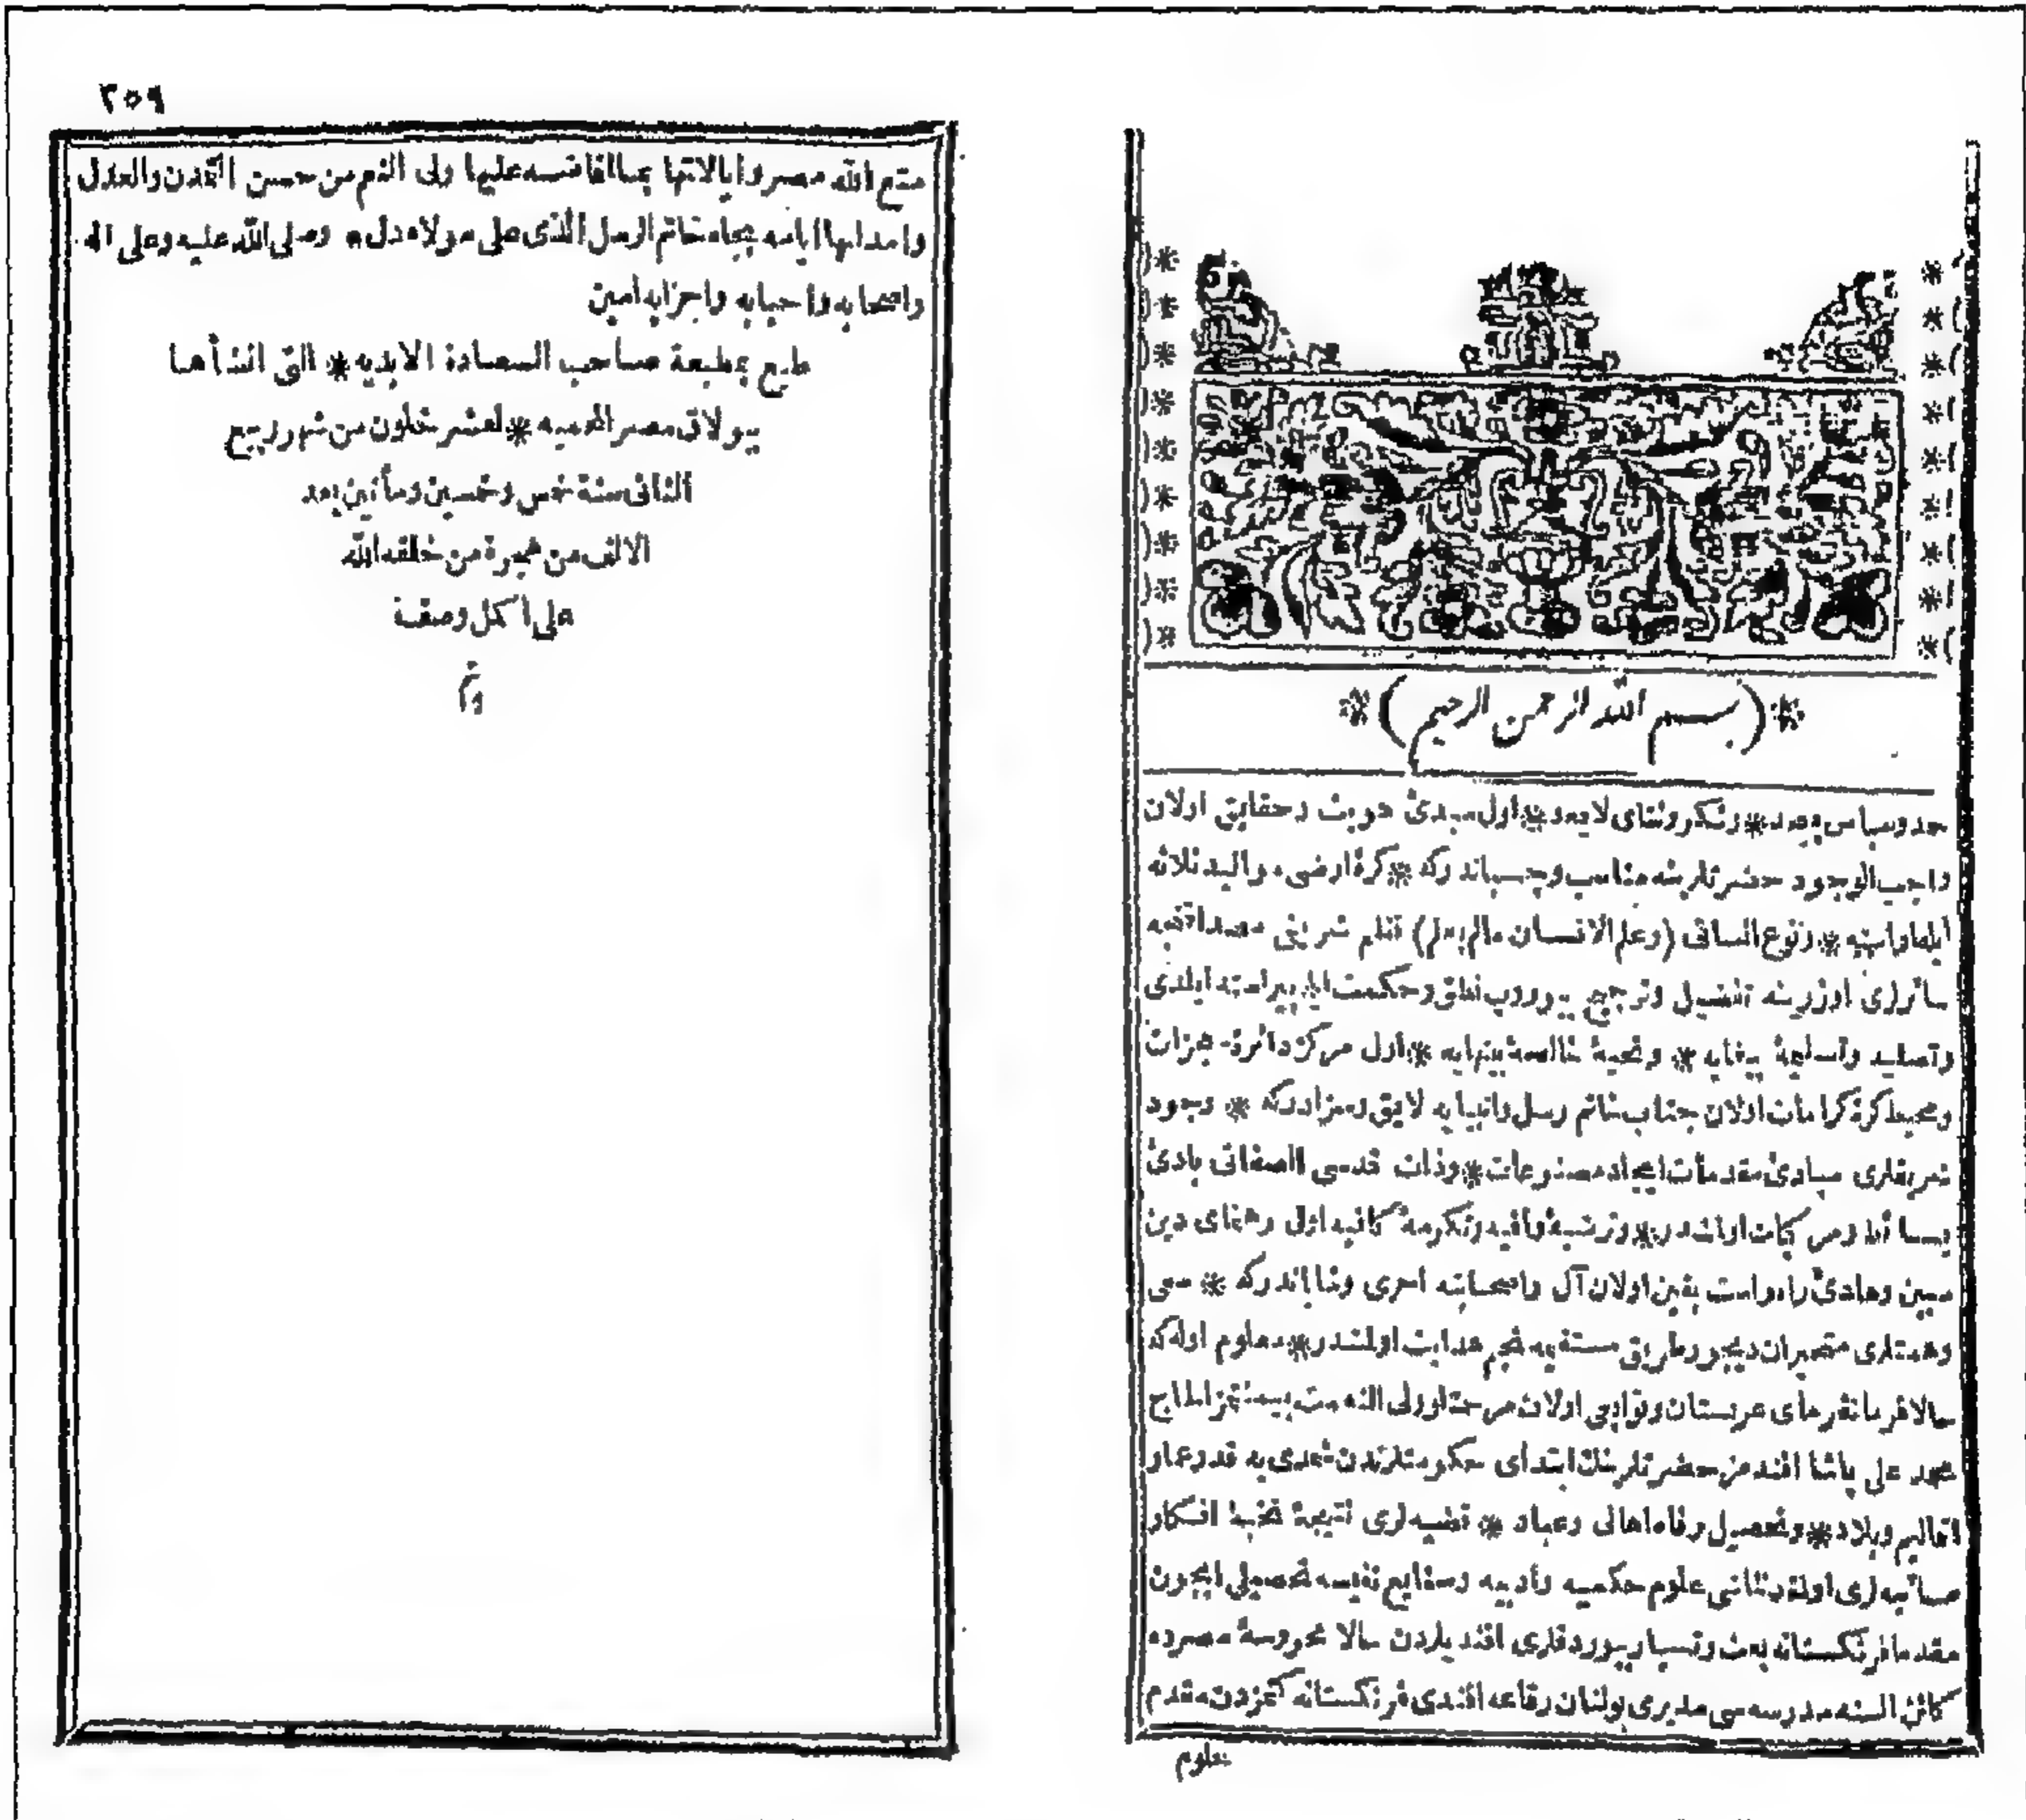 بسم الله الرحمن الرحيم
حمد وسپاس بيعد * وشكر وثناى لايعد * اول مبدئ هويت وحقايق اولان
واجب الوجود حضرتلرينه مناسب وچسپاندركه * كرهٔ ارضى مواليد ثلاثه
ايله * ونوع انسانى (وعلم الانسان مالم يعلم) نظم شريفى
سائرلرى اوزرينه تفضيل وترجيح بيوروب نطق وحكمت ايله پيراسته ايلدى
وتصليه وتسليمهٔ بيغايه * وتحيهٔ خالصهٔ بينهايه * اول مركز دائرهٔ معجزات
ومحيط كرهٔ كرامات اولان جناب خاتم رسل وانبيايه لايق وسزادركه * وجود
شريفلرى مبادئ مقدمات ايجاد مصنوعات * وذات قدسى الصفاتى بادئ
بسائط ومركبات اولمشدر * وترضيهٔ وافيه وتكرمهٔ كافيه اول رهنماى دين
مبين وهادئ راه راست يقين اولان آل واصحابنه احرى وشاياندركه * سعى
وهمتلرى متحيران ديجور طريق مستقيمه نجم هدايت اولمشدر * معلوم اوله كه
حالا فرمانفرماى عربستان وتوابعى اولان مرحمتلو ولى النعم الحاج
محمد على پاشا افندمز حضرتلرينك ابتداى حكومتلرندن شمدى يه قدر وعمار
اقاليم وبلاد * وتحصيل رفاه اهالى وعباد * قضيه لرى نتيجهٔ نخبهٔ افكار
صائبه لرى علوم حكميه وأدبيه وصنايع نفيسه تحصيلى ايچون
مقدما فرنكستانه بعث وتسيار بيوردقلرى افنديلردن حالا محروسهٔ مصرده
كائن السنه مدرسه سى مديرى بولنان رفاعه افندى فرنكستانه كتمزدن مقدم
معلوم
٢٥٩
متع الله مصر وايالاتها بما افاضه عليها ولى النعم من حسن التمدن والعدل
وامد لها ايامه بجاه خاتم الرسل الذى على مولاه دل * وصلى الله عليه وعلى اله
واصحابه واحبابه واحزابه امين
طبع بمطبعة صاحب السعادة الابديه * التى انشأها
ببولاق مصر المحميه * لعشر خلون من شهر ربيع
الثانى سنة خمس وخمسين ومأتين بعد
الالف من هجرة من خلقه الله
على اكمل وصفة
تم